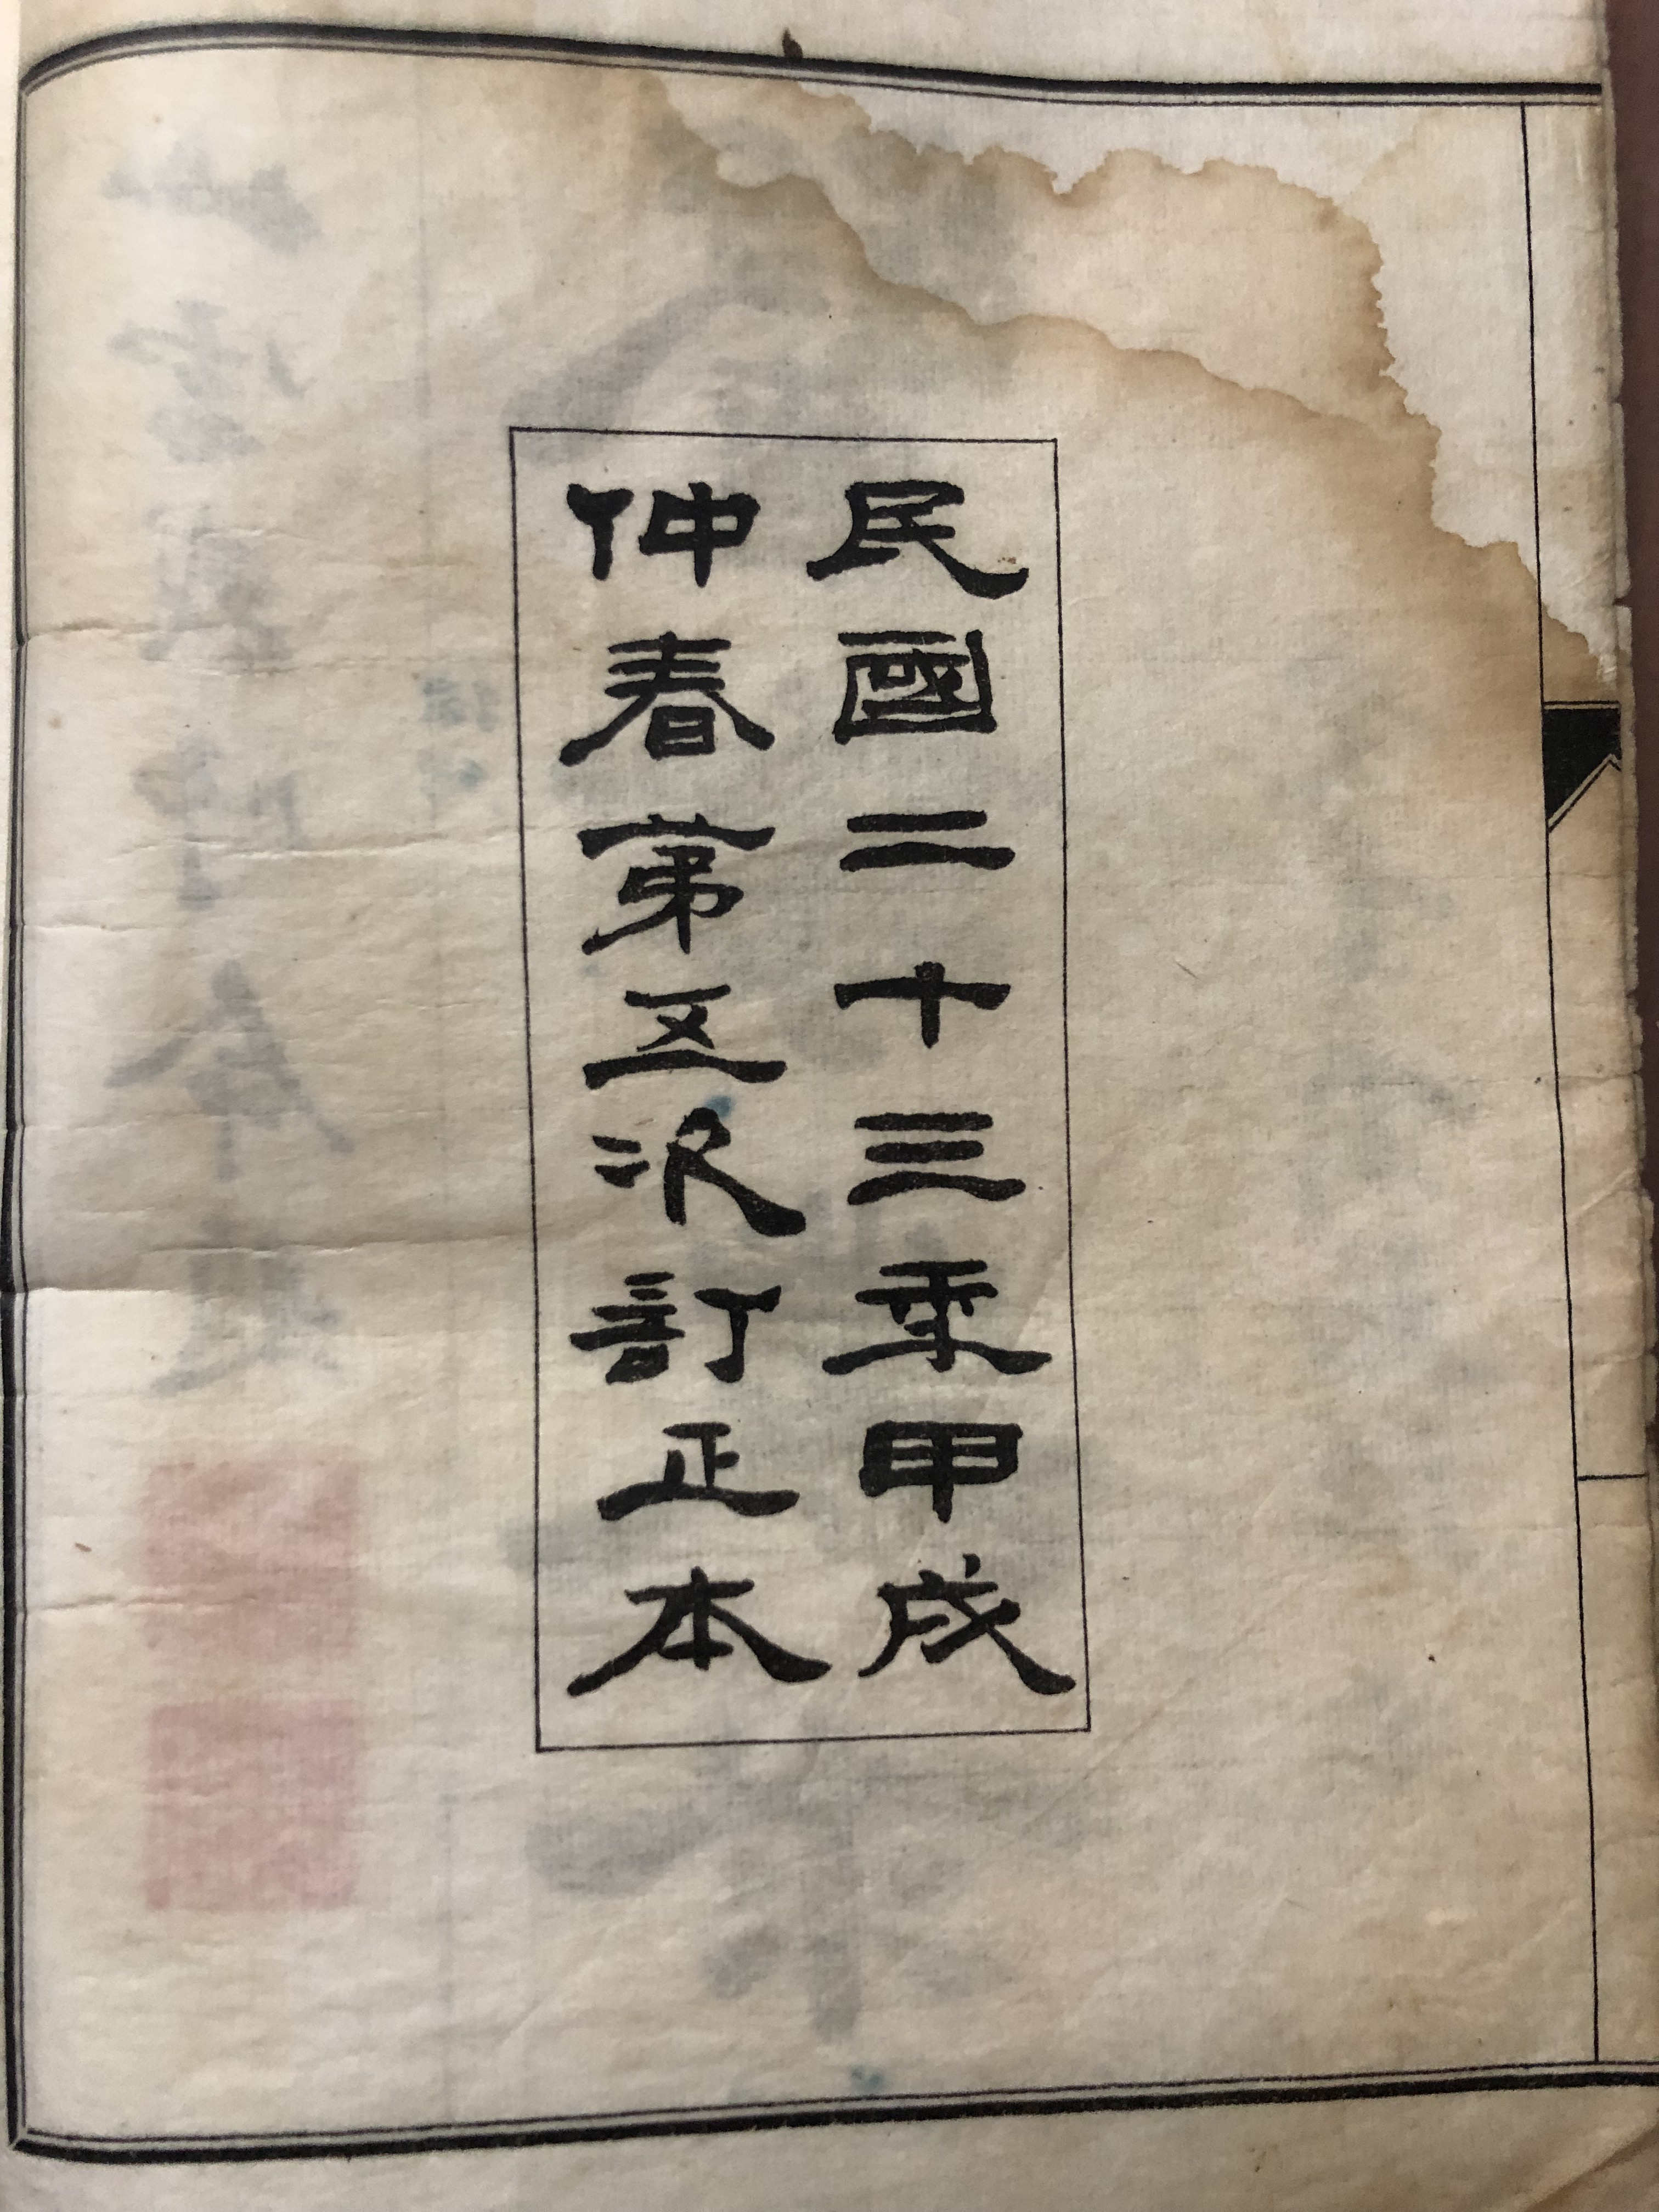 民國二十三年甲戌
仲春第五次訂正本